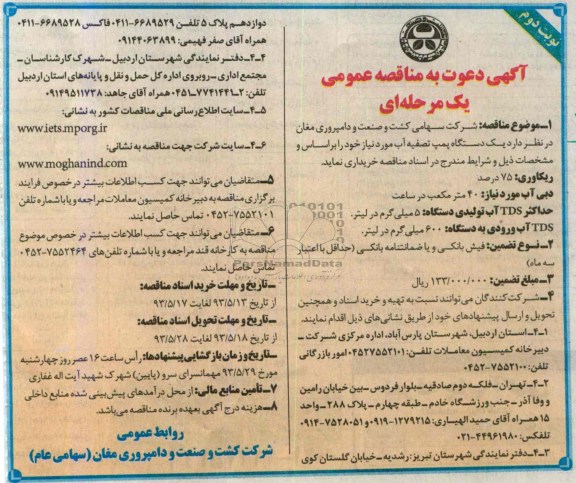 نوبت دوم
آگهی دعوت به مناقصه عمومی
یک مرحله‌ای
۱ــ موضوع مناقصه: شرکت سهامی کشت و صنعت و دامپروری مغان
در نظر دارد یک دستگاه پمپ تصفیه آب مورد نیاز خود را بر اساس و
مشخصات ذیل و شرایط مندرج در اسناد مناقصه خریداری نماید.
ریکاوری: ۷۵ درصد
دبی آب مورد نیاز: ۴۰ متر مکعب در ساعت
حداکثر TDS آب تولیدی دستگاه: ۵ میلی‌گرم در لیتر.
TDS آب ورودی به دستگاه: ۶۰۰ میلی‌گرم در لیتر.
۲ــ نوع تضمین: فیش بانکی و یا ضمانتنامه بانکی (حداقل با اعتبار
سه ماه)
۳ــ مبلغ تضمین: ۱۳۳/۰۰۰/۰۰۰ ریال
۴ــ شرکت‌کنندگان می‌توانند نسبت به تهیه و خرید اسناد و همچنین
تحویل و ارسال پیشنهادهای خود از طریق نشانی‌های ذیل اقدام نمایند.
۴ــ۱ــ استان اردبیل، شهرستان پارس‌آباد، اداره مرکزی شرکت ــ
دبیرخانه کمیسیون معاملات تلفن: ۰۴۵۲۷۵۵۲۱۰۱ امور بازرگانی
تلفن: ۷۵۵۲۱۰۰-۰۴۵۲
۴ــ۲ــ تهران ــ فلکه دوم صادقیه ــ بلوار فردوس ــ بین خیابان رامین
و وفا آذر ــ جنب ورزشگاه خادم ــ طبقه چهارم ــ پلاک ۲۸۸ ــ واحد
۱۵ همراه آقای حمید الهیاری: ۱۲۷۹۲۱۵-۰۹۱۹ و ۷۵۲۸۰۵۱-۰۹۱۴
تلفکس: ۴۴۹۶۱۹۸۰-۰۲۱
۴ــ۳ــ دفتر نمایندگی شهرستان تبریز: رشدیه ــ خیابان گلستان کوی
دوازدهم پلاک ۵ تلفن ۶۶۸۹۵۲۹-۰۴۱۱ فاکس ۶۶۸۹۵۲۸-۰۴۱۱
همراه آقای صفر فهیمی: ۰۹۱۴۴۰۶۳۸۹۹
۴ــ۴ــ دفتر نمایندگی شهرستان اردبیل ــ شهرک کارشناسان ــ
مجتمع اداری ــ روبروی اداره کل حمل و نقل و پایانه‌های استان اردبیل
تلفن: ۲ــ۷۷۴۱۴۴۱-۰۴۵۱ همراه آقای جاهد: ۰۹۱۴۹۵۱۱۷۳۸
۴ــ۵ــ سایت اطلاع‌رسانی ملی مناقصات کشور به نشانی:
www.iets.mporg.ir
۴ــ۶ــ سایت شرکت جهت مناقصه به نشانی:
www.moghanind.com
۵ــ متقاضیان می‌توانند جهت کسب اطلاعات بیشتر در خصوص فرایند
برگزاری مناقصه به دبیرخانه کمیسیون معاملات مراجعه و یا با شماره تلفن
۷۵۵۲۱۰۱-۰۴۵۲ تماس حاصل نمایند.
۶ــ متقاضیان می‌توانند جهت کسب اطلاعات بیشتر در خصوص موضوع
مناقصه به کارخانه قند مراجعه و یا با شماره تلفن‌های ۷۵۵۲۴۶۴-۰۴۵۲
تماس حاصل نمایند.
ــ تاریخ و مهلت خرید اسناد مناقصه:
از تاریخ ۹۳/۵/۱۳ لغایت ۹۳/۵/۱۷
ــ تاریخ و مهلت تحویل اسناد مناقصه:
از تاریخ ۹۳/۵/۱۸ لغایت ۹۳/۵/۲۸
ــ تاریخ و زمان بازگشایی پیشنهادها: رأس ساعت ۱۶ عصر روز چهارشنبه
مورخ ۹۳/۵/۲۹ مهمانسرای سرو (پایین) شهرک شهید آیت اله غفاری
۷ــ تأمین منابع مالی: از محل درآمدهای پیش‌بینی شده منابع داخلی
۸ــ هزینه درج آگهی بعهده برنده مناقصه می‌باشد.
روابط عمومی
شرکت کشت و صنعت و دامپروری مغان (سهامی عام)
ParsNamadData